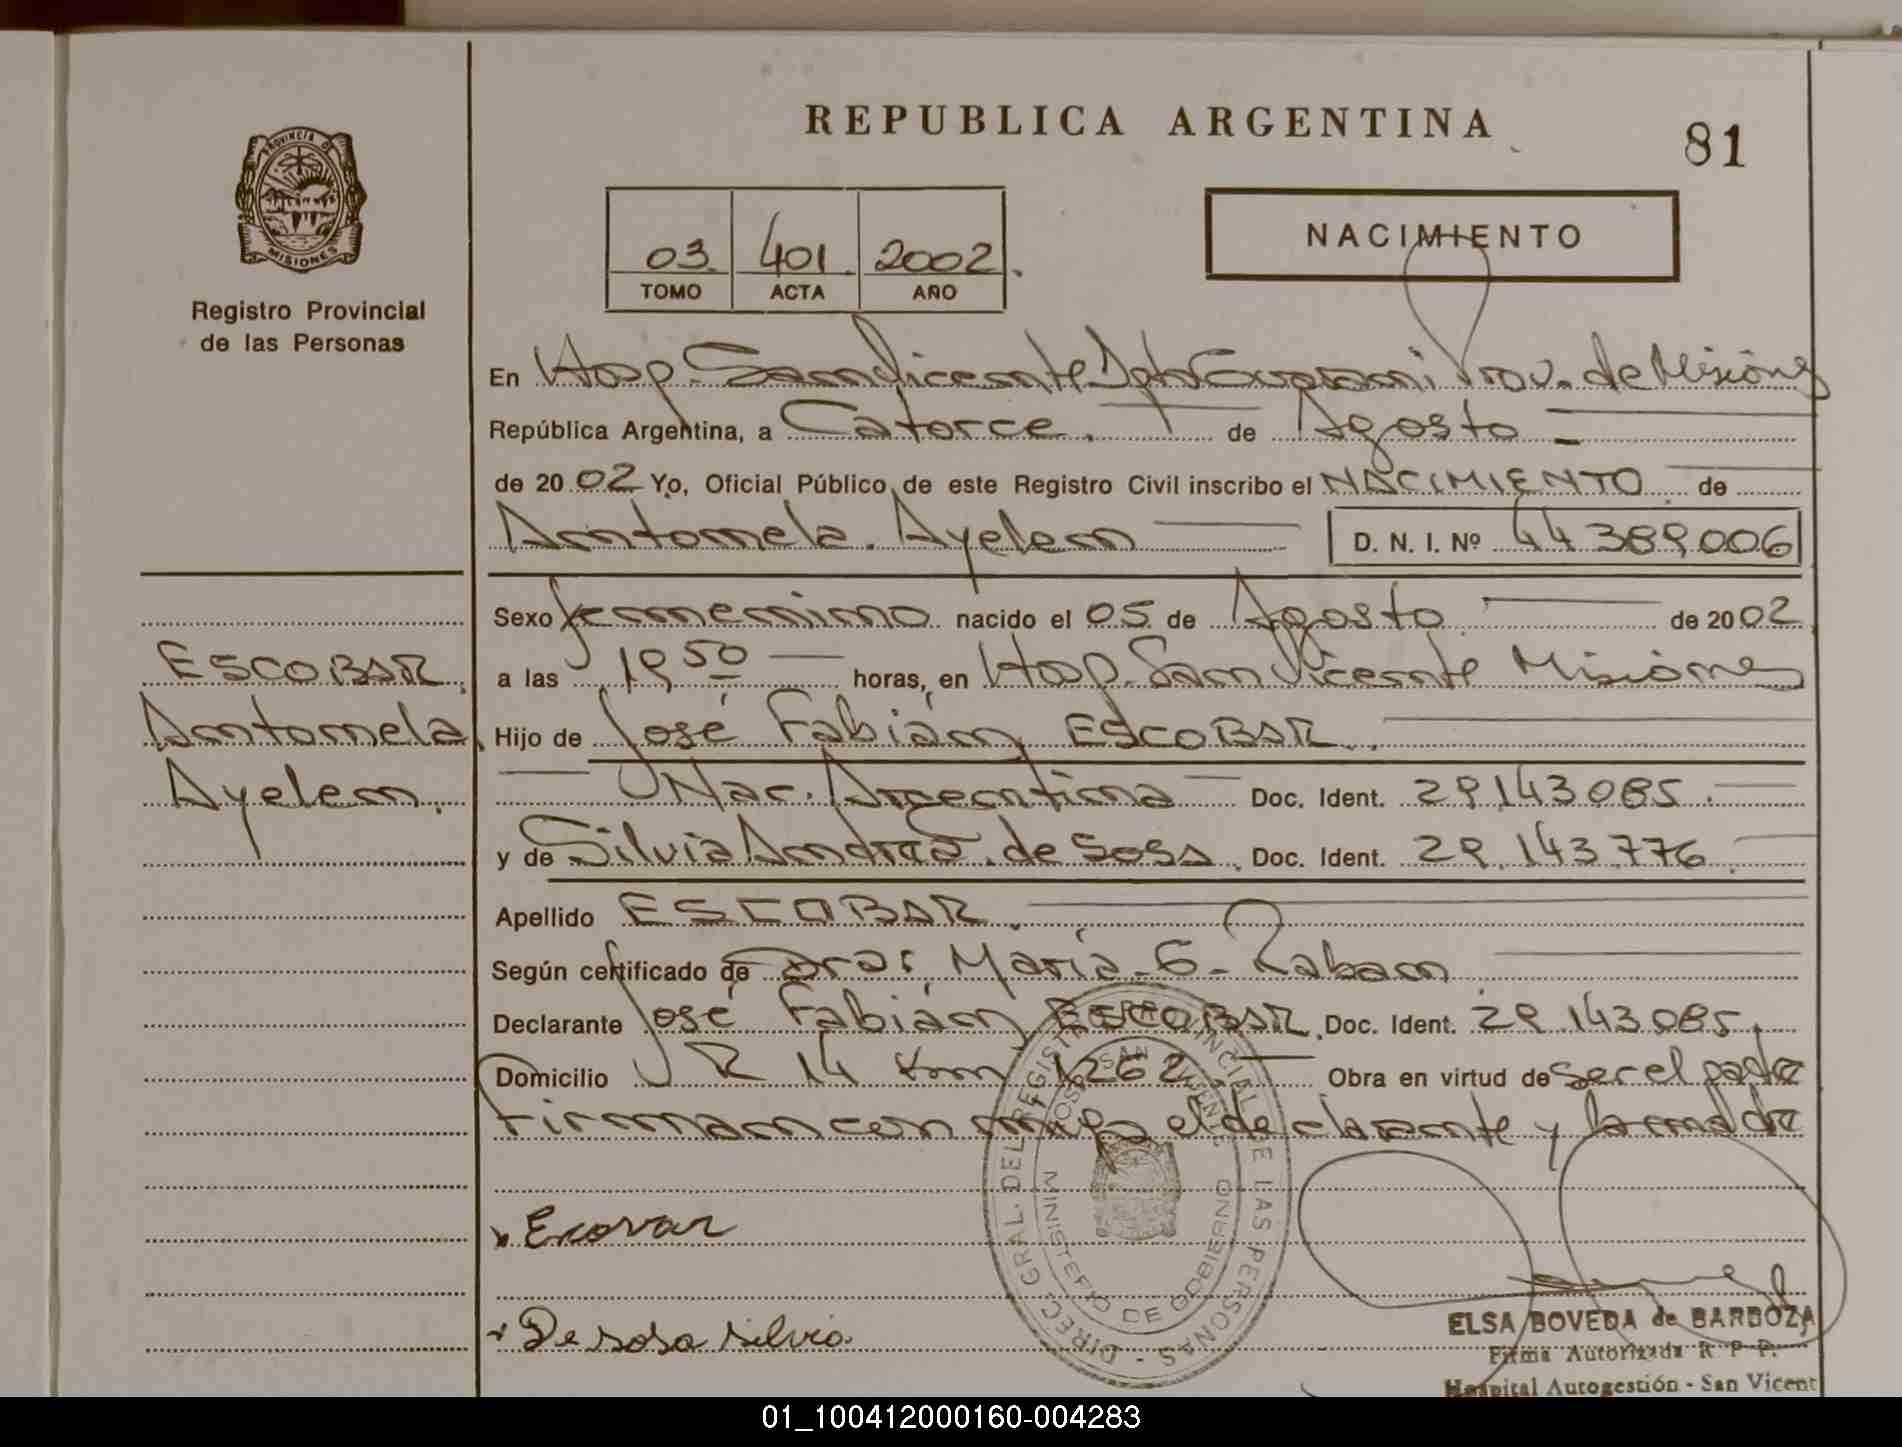 REPUBLICA ARGENTINA
81
PROVINCIA DE
MISIONES
Registro Provincial
de las Personas
03 401 2002
TOMO ACTA AÑO
NACIMIENTO
En Hosp. San Vicente Dpto Guarani Prov. de Misiones
República Argentina, a Catorce de Agosto
de 2002 Yo, Oficial Público de este Registro Civil inscribo el NACIMIENTO de
Antonela Ayelen D. N. I. Nº 44389006
Sexo femenino nacido el 05 de Agosto de 2002
a las 19,50 horas, en Hosp. San Vicente Misiones
Hijo de José Fabián ESCOBAR
Nac. Argentina Doc. Ident. 29.143.085
y de Silvia Andrea de Sosa Doc. Ident. 29.143.776
Apellido ESCOBAR
Según certificado de Dra: María G. Raban
Declarante José Fabián ESCOBAR Doc. Ident. 29.143.085
Domicilio R 14 Km 1262 Obra en virtud de ser el padre
Firman con migo el declarante y la madre
ESCOBAR
Antonela
Ayelen.
Escovar
De sosa silvia
DIREC. GRAL. DEL REGISTRO PROVINCIAL DE LAS PERSONAS
MINISTERIO DE GOBIERNO
HOSP. SAN VICENTE
ELSA BOVEDA de BARBOZA
Firma Autorizada R P P.
Hospital Autogestión - San Vicent
01_100412000160-004283